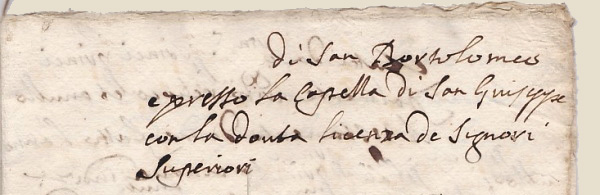 di San Bortolomeo
e presso la Capella di San Giuseppe
con la douta licenza de Signori
Superiori